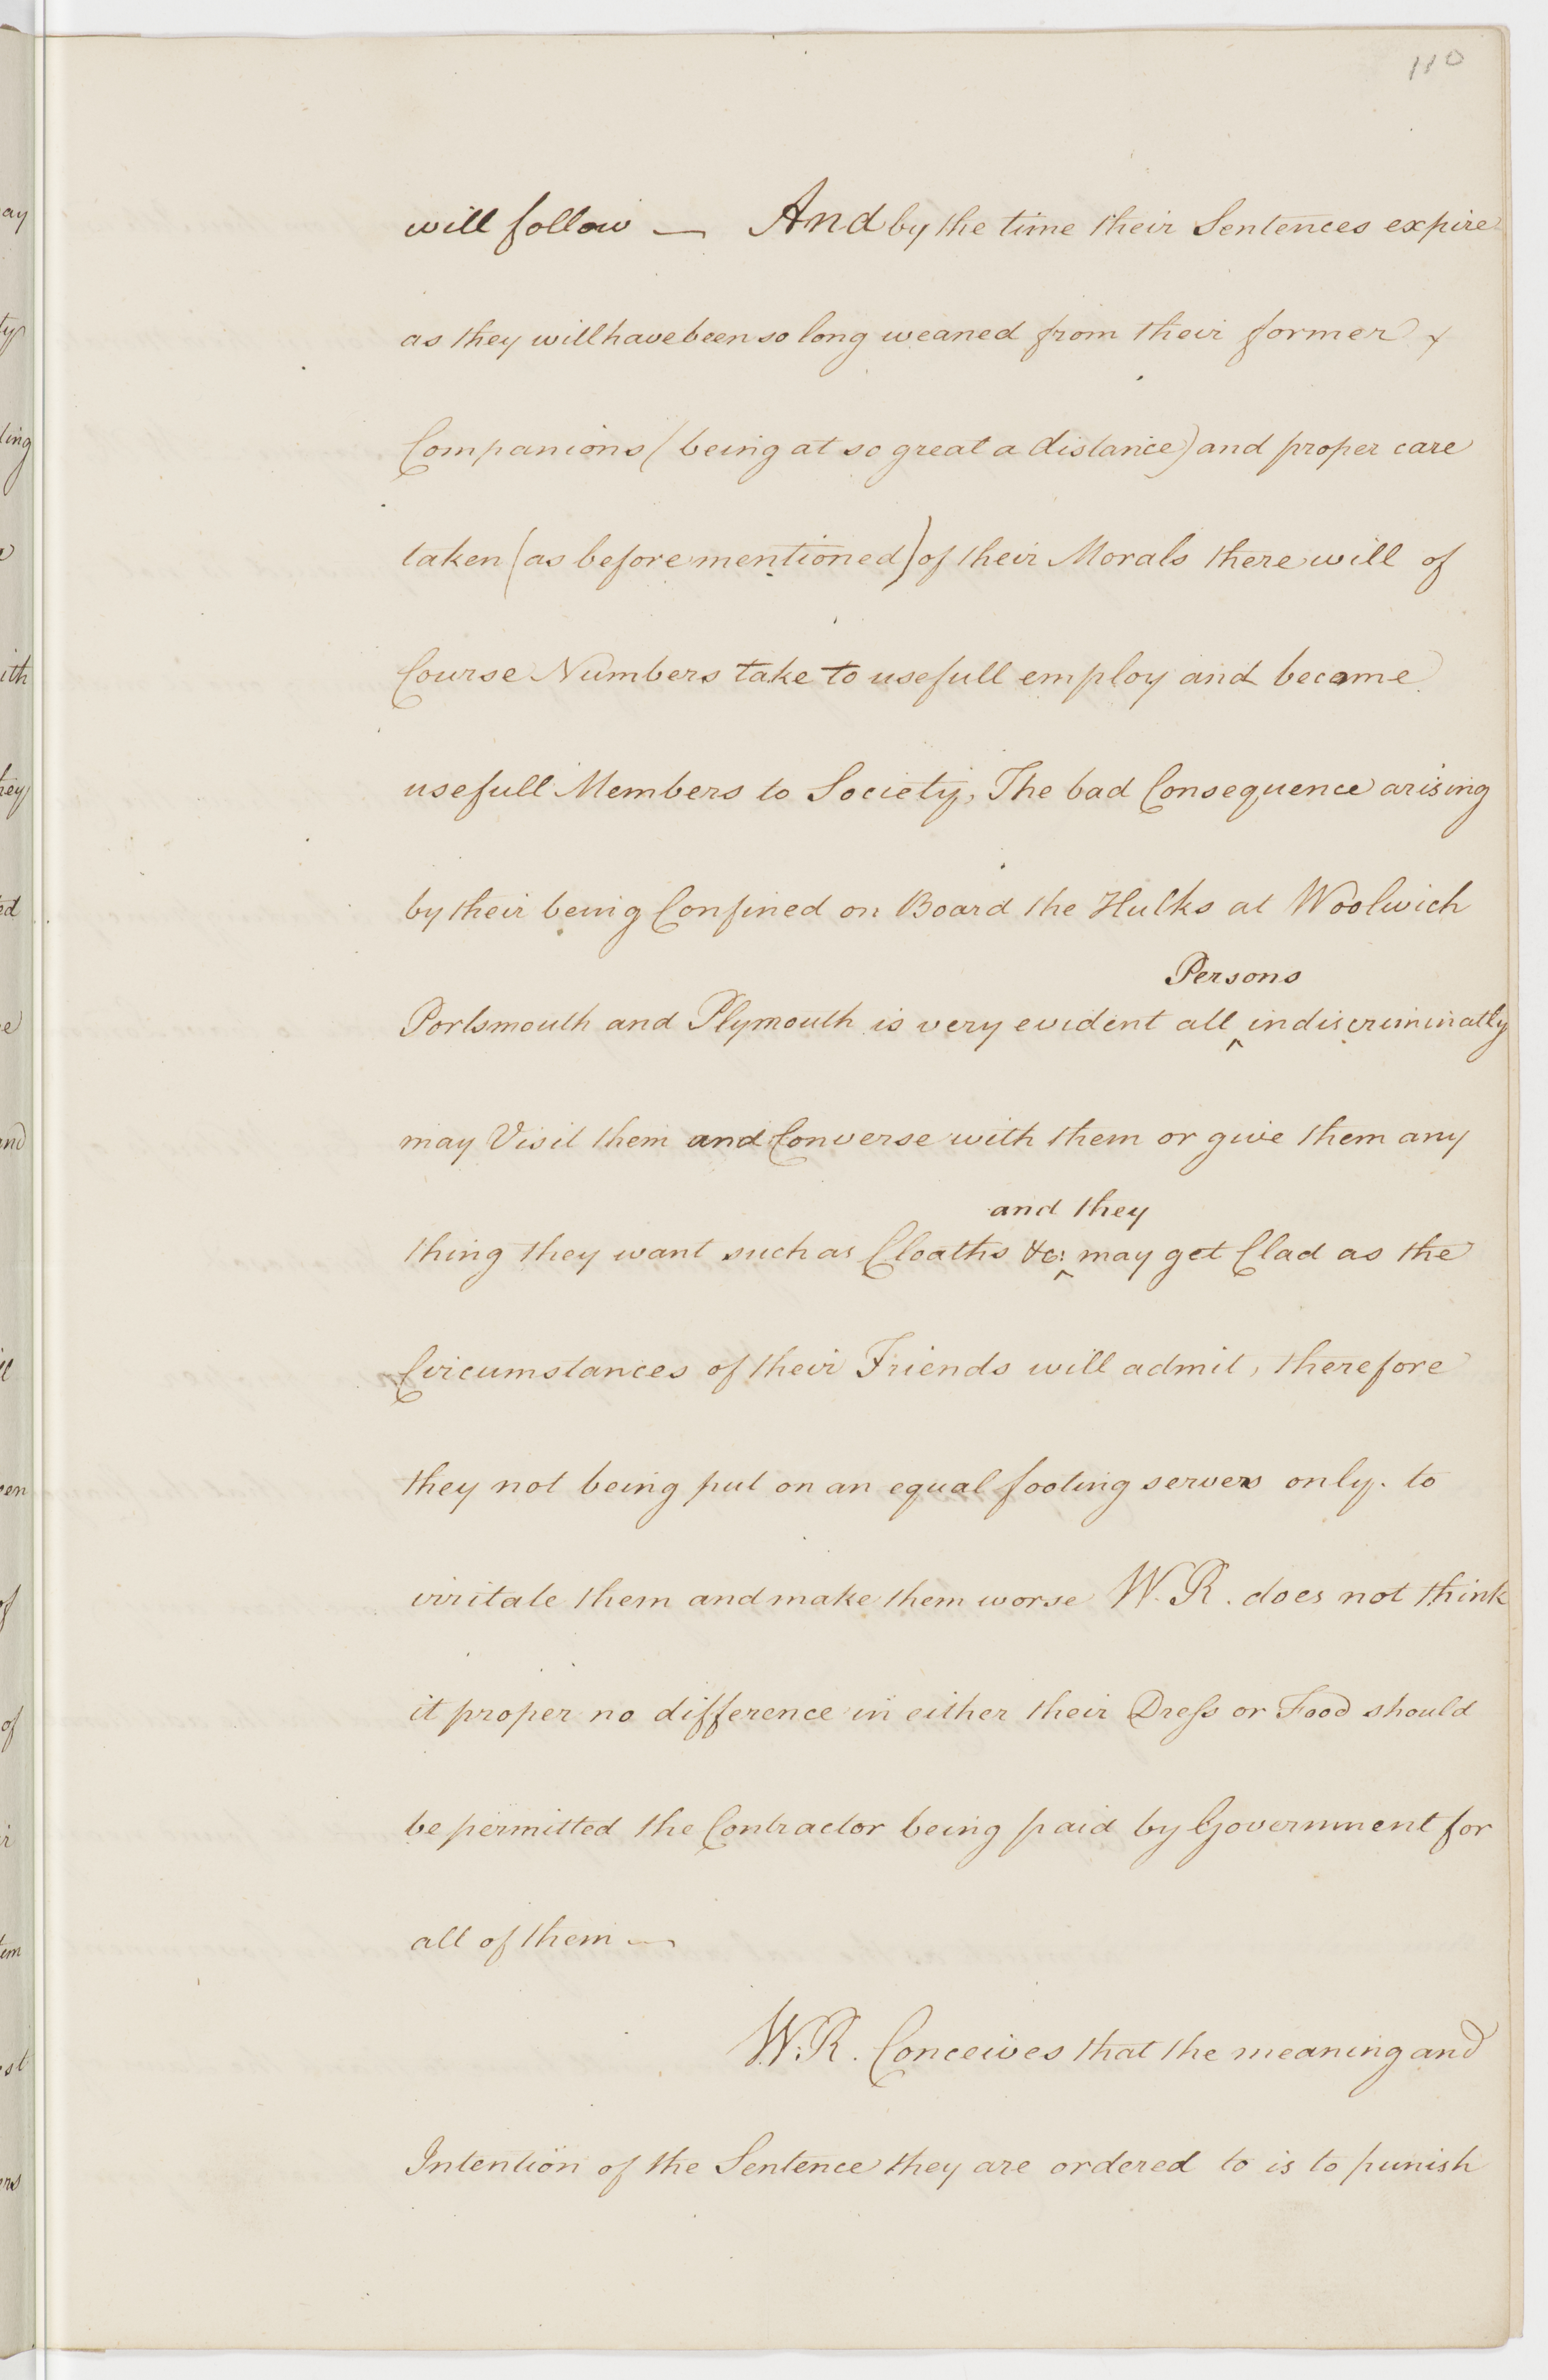 110
will follow — And by the time their Sentences expire
as they will have been so long weaned from their former
Companions (being at so great a distance) and proper care
taken (as before mentioned) of their Morals there will of
Course Numbers take to usefull employ and become
usefull Members to Society, The bad Consequence arising
by their being Confined on Board the Hulks at Woolwich
Persons
Portsmouth and Plymouth is very evident all ^ indiscriminatly
may Visit them and Converse with them or give them any
and they
thing they want such as Cloaths &c: ^ may get Clad as the
Circumstances of their Friends will admit, therefore
they not being put on an equal footing serves only. to
irritate them and make them worse W.R. does not think
it proper no difference in either their Dress or Food should
be permitted the Contractor being paid by Government for
all of them —
W.R. Conceives that the meaning and
Intention of the Sentence they are ordered to is to punish